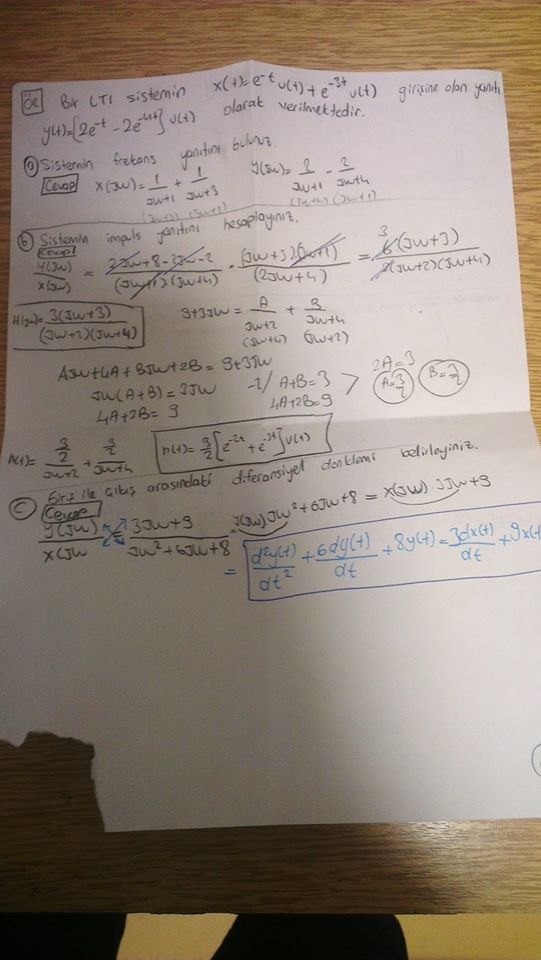 ÖR Bir LTI sistemin x(t)=e^-t u(t)+e^-3t u(t) girişine olan yanıtı
y(t)=[2e^-t - 2e^-4t] u(t) olarak verilmektedir.
a) Sistemin frekans yanıtını bulunuz
Cevap X(Jw)= 1/(Jw+1) + 1/(Jw+3) Y(Jw)= 2/(Jw+1) - 2/(Jw+4)
(Jw+3) (Jw+1) (Jw+4) (Jw+1)
b) Sistemin impuls yanıtını hesaplayınız.
Cevap
Y(Jw)/X(Jw) = (2Jw+8-2Jw-2)/((Jw+1)(Jw+4)) . ((Jw+3)(Jw+1))/(2Jw+4) = 3 6(Jw+3)/(2(Jw+2)(Jw+4))
H(Jw)= 3(Jw+3)/((Jw+2)(Jw+4)) 9+3Jw = A/(Jw+2) + B/(Jw+4)
(Jw+4) (Jw+2)
AJw+4A+BJw+2B = 9+3Jw
Jw(A+B)=3Jw -2/ A+B=3 > 2A=3 A=3/2 B=3/2
4A+2B=9 4A+2B=9
h(t)= (3/2)/(Jw+2) + (3/2)/(Jw+4) h(t)=3/2[e^-2t + e^-4t]u(t)
c) Giriş ile Çıkış arasındaki diferansiyel denklemi belirleyiniz.
Cevap
Y(Jw)/X(Jw = (3Jw+9)/(Jw²+6Jw+8) = Y(Jw) Jw²+6Jw+8 = X(Jw).3Jw+9
= d²y(t)/dt² + 6dy(t)/dt + 8y(t) = 3dx(t)/dt + 9x(t